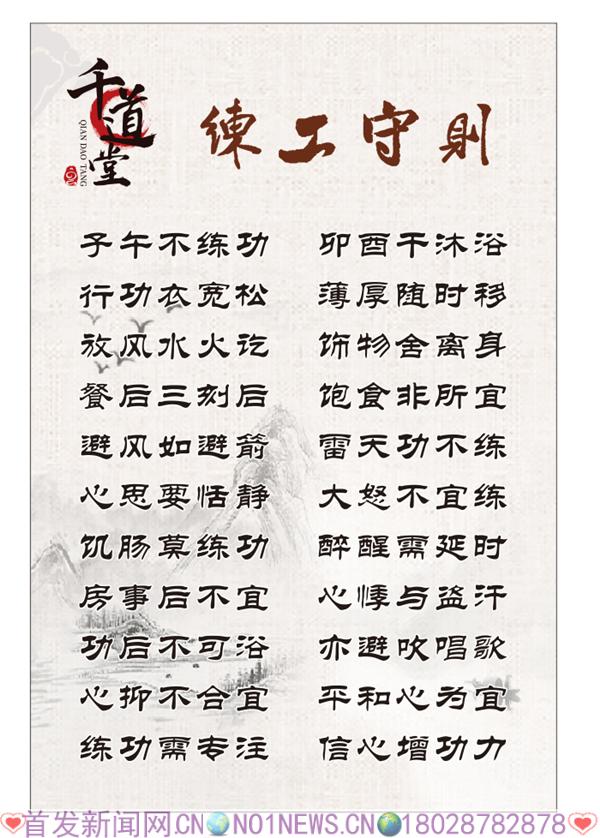 千道堂
QIAN DAO TANG
練工守則
子午不练功 卯酉干沐浴
行功衣宽松 薄厚随时移
放风水火讫 饰物舍离身
餐后三刻后 饱食非所宜
避风如避箭 雷天功不练
心思要恬静 大怒不宜练
饥肠莫练功 醉醒需延时
房事后不宜 心悸与盗汗
功后不可浴 亦避吹唱歌
心抑不合宜 平和心为宜
练功需专注 信心增功力
首发新闻网.CN NO1NEWS.CN 18028782878